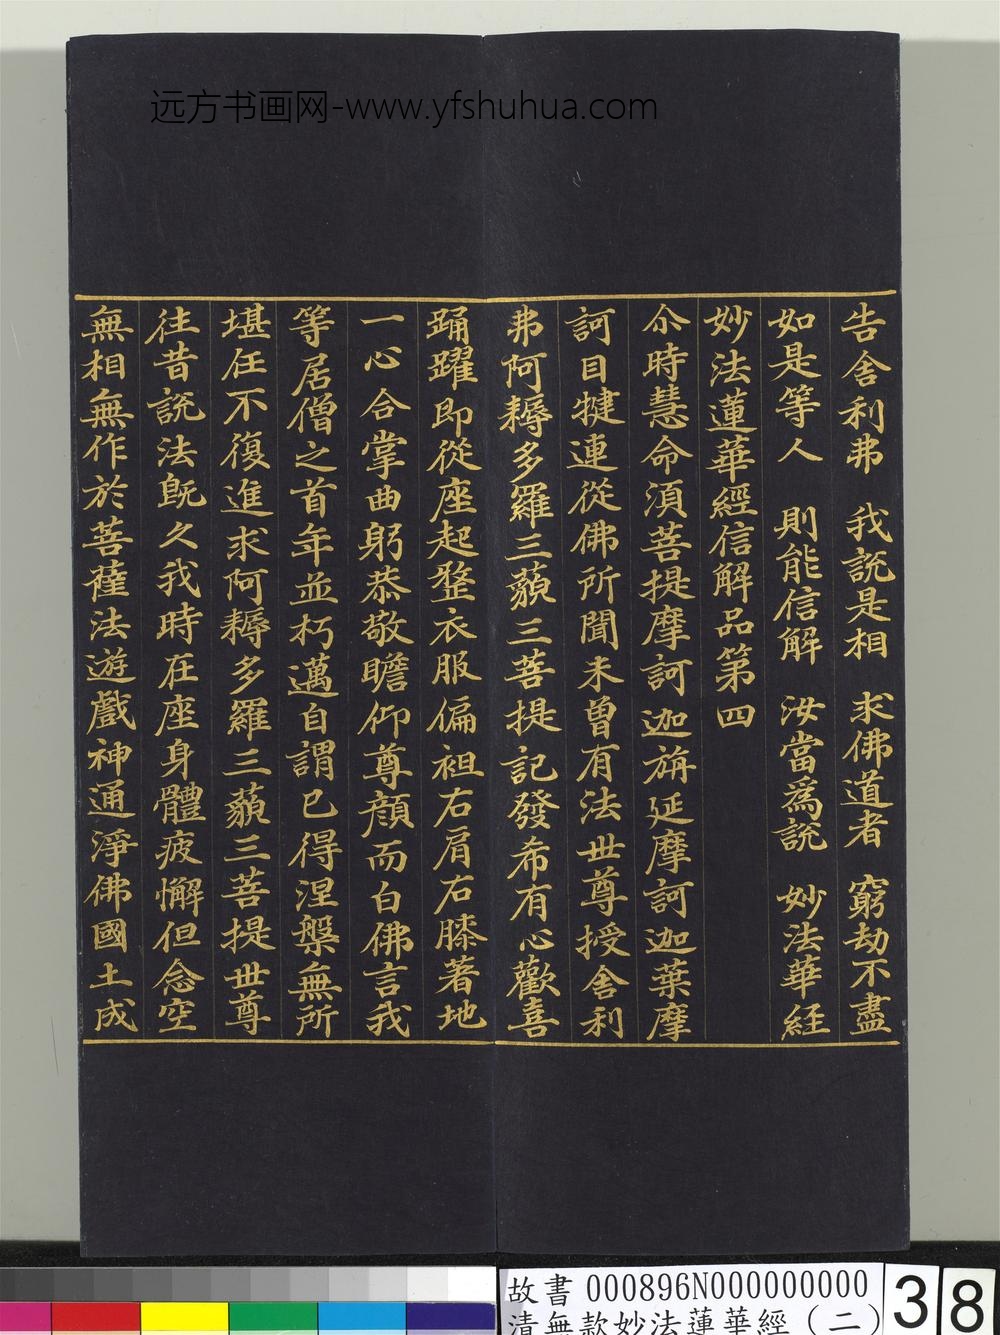 远方书画网-www.yfshuhua.com
告舍利弗　我說是相　求佛道者　窮劫不盡
如是等人　則能信解　汝當為說　妙法華経
妙法蓮華經信解品第四
尒時慧命湏菩提摩訶迦旃延摩訶迦葉摩
訶目揵連從佛所聞未曾有法世尊授舍利
弗阿耨多羅三藐三菩提記發希有心歡喜
踊躍即從座起整衣服偏袒右肩右膝著地
一心合掌曲躬恭敬瞻仰尊顏而白佛言我
等居僧之首年並朽邁自謂已得涅槃無所
堪任不復進求阿耨多羅三藐三菩提世尊
往昔說法旣久我時在座身體疲懈但念空
無相無作於菩薩法遊戲神通淨佛國土成
故書 000896N000000000
清無款妙法蓮華經（二）
38